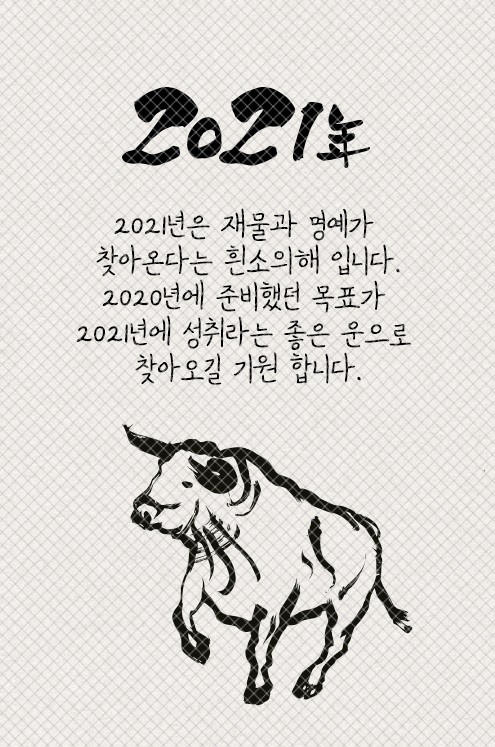 2021年
2021년은 재물과 명예가
찾아온다는 흰소의해 입니다.
2020년에 준비했던 목표가
2021년에 성취라는 좋은 운으로
찾아오길 기원 합니다.